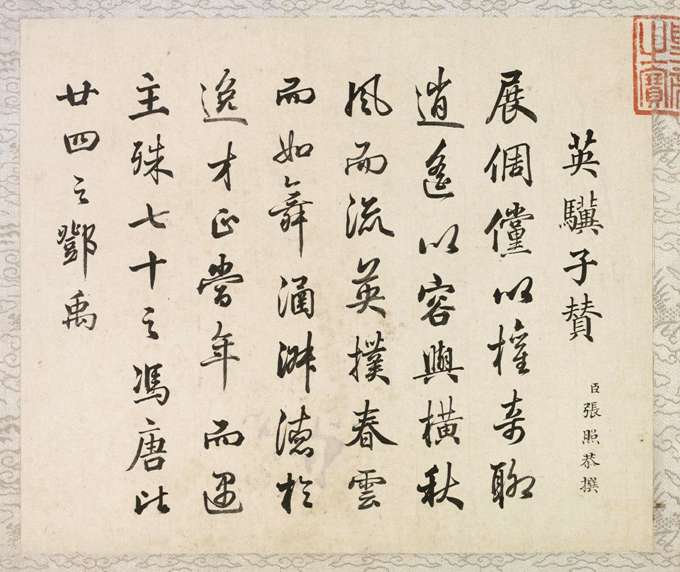 之寶
英驥子賛
臣張照恭撰
展倜儻以權奇聊
逍遙以容與橫秋
風而流英撲春雲
而如舞涵淵德於
逸才正當年而遇
主殊七十之馮唐比
廿四之鄧禹